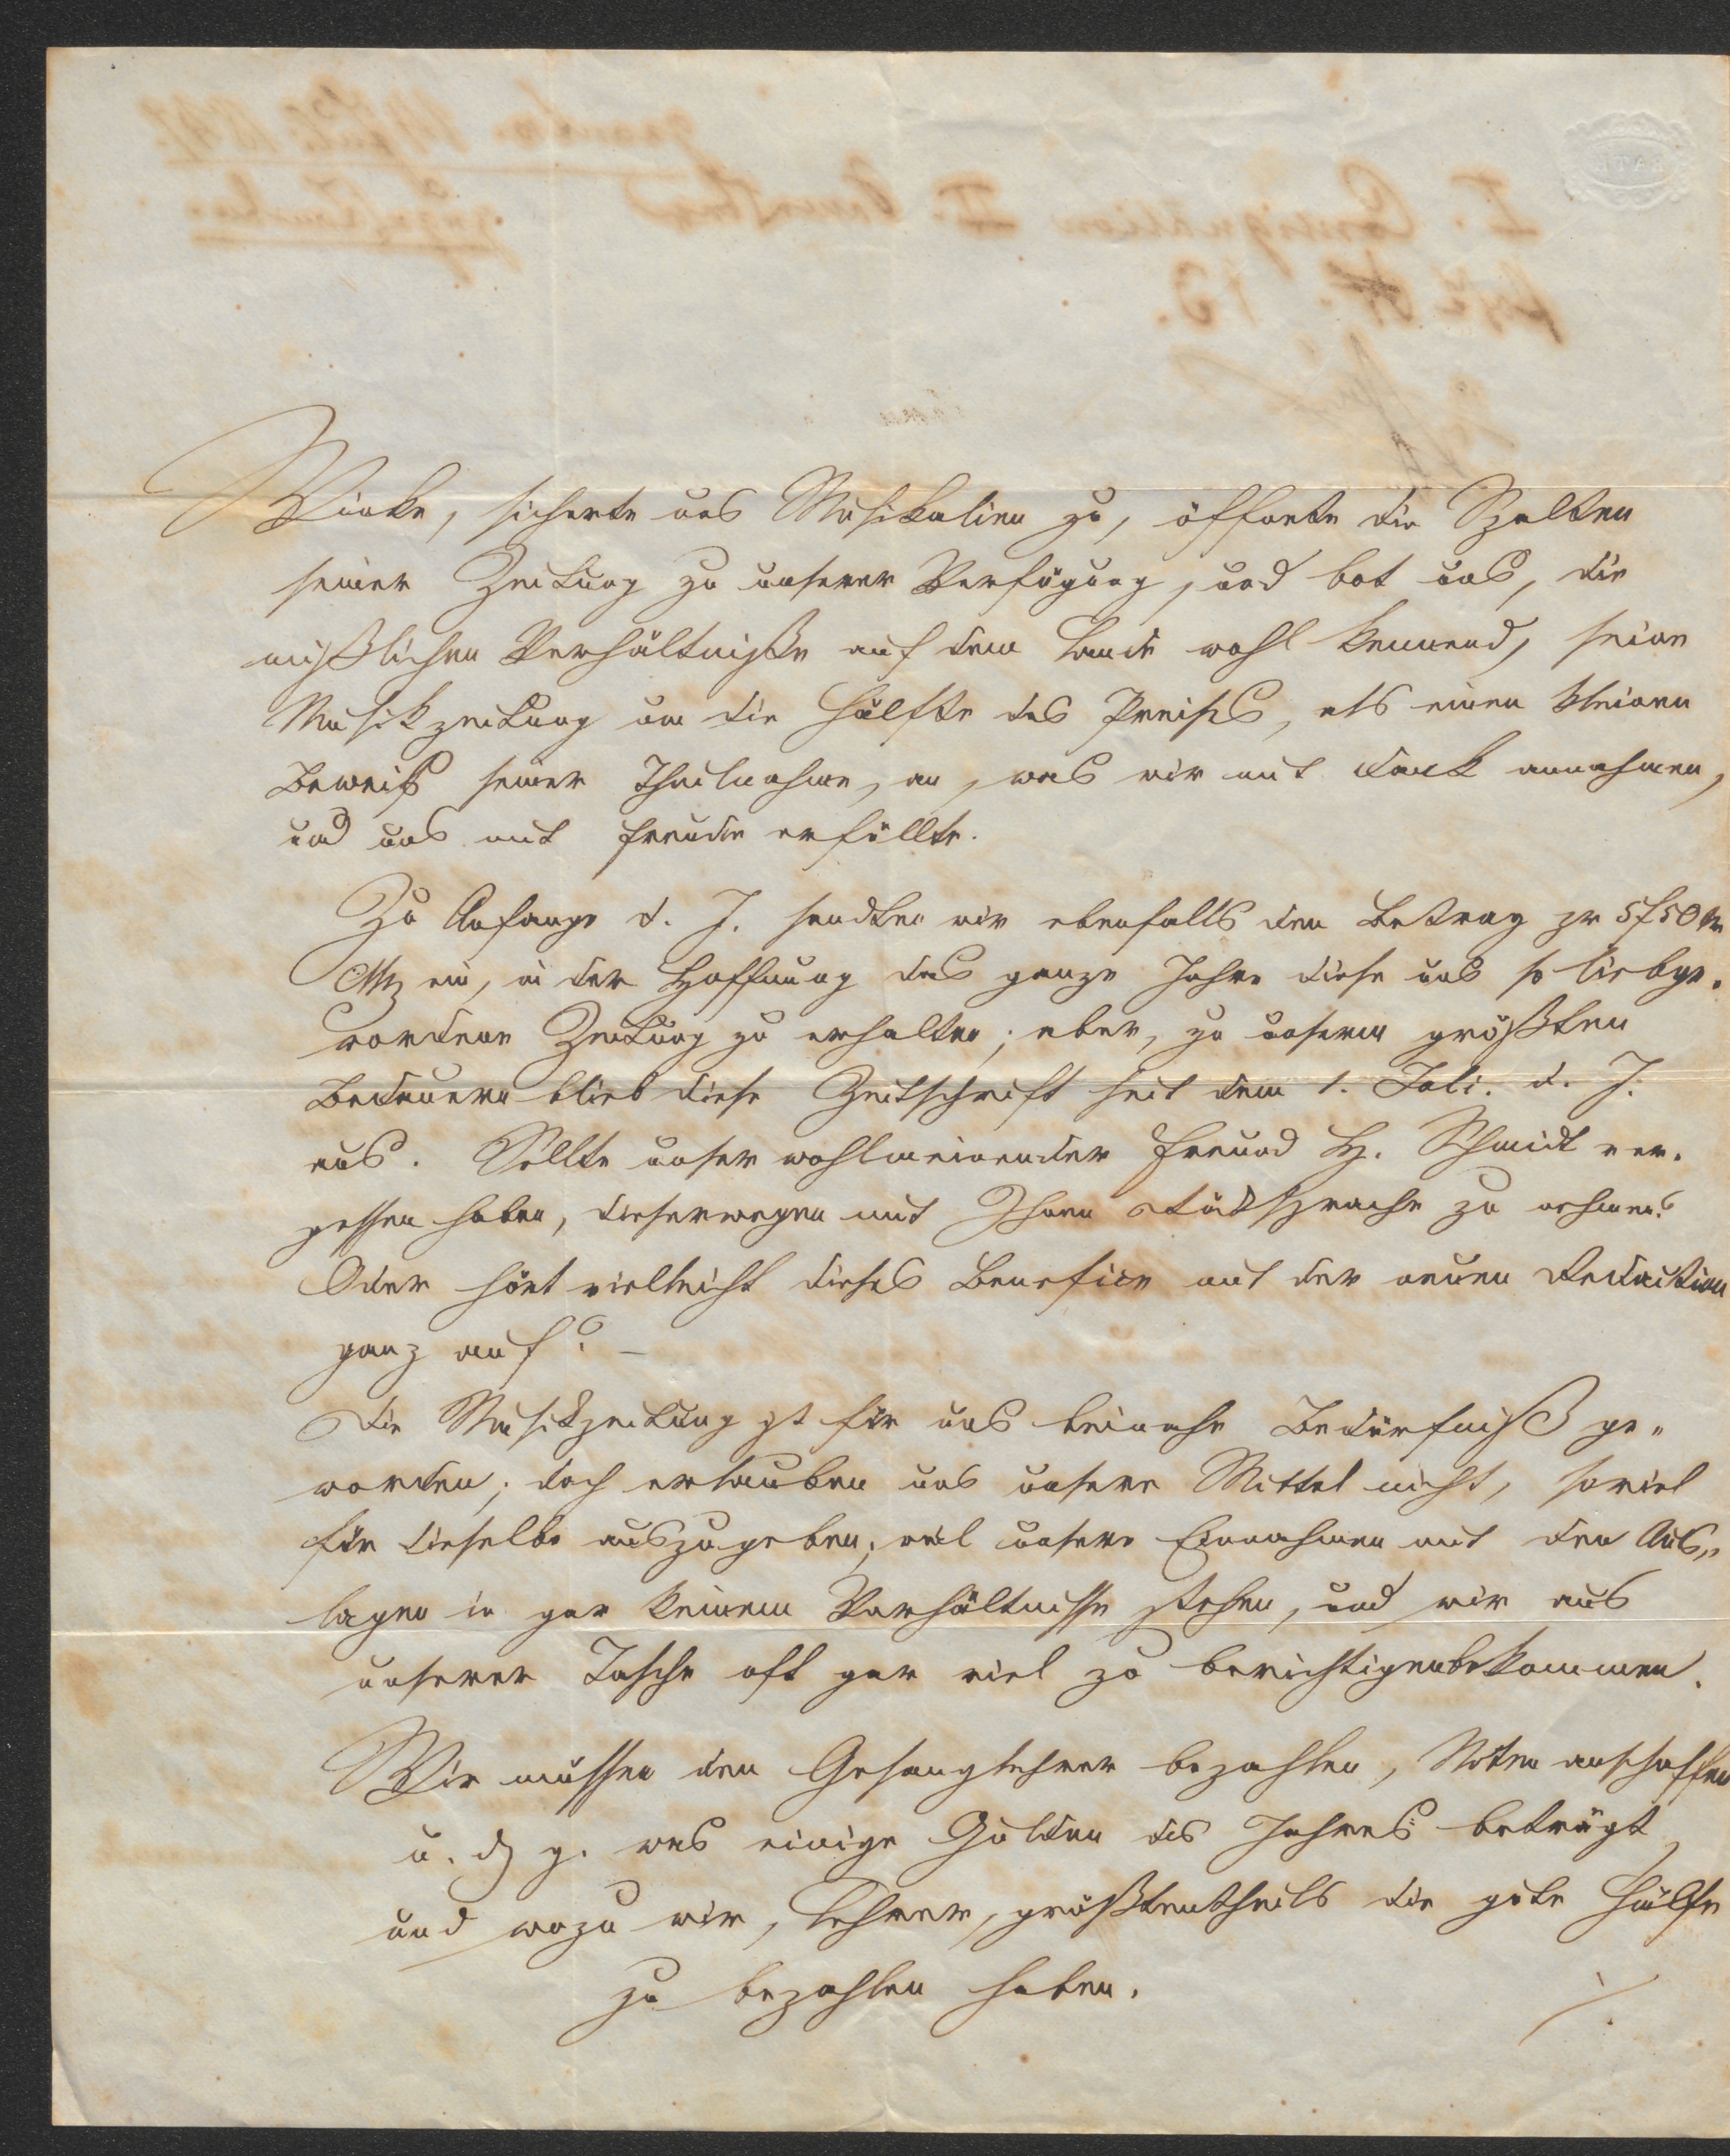 Winke, sicherte uns Musikalien zu, öffnete die Spalten
seiner Zeitung zu unserer Verfügung, und bot uns, die
mißlichen Verhältniße auf dem Lande wohl kennend, seine
Musikzeitung um die Hälfte des Preises, als einen kleinen
Beweis seiner Theilnahme, an, was wir mit Dank annahmen,
und uns mit Freude erfüllte.
Zu Anfange d. J. sandten wir ebenfalls den Betrag pr 5f50kr
CMz ein, in der Hoffnung das ganze Jahr diese uns so liebge-
wordene Zeitung zu erhalten; aber, zu unserm größten
Bedauern blieb diese Zeitschrift seit dem 1. Juli. d. J.
aus. Sollte unser wohlmeinender Freund H. Schmidt ver-
gessen haben, dieserwegen mit Ihnen Rücksprache zu nehmen?
Oder hört vielleicht dieses Benefice mit der neuen Redaction
ganz auf? –
Die Musikzeitung ist für uns beinahe Bedürfniß ge-
worden; doch erlauben uns unsere Mittel nicht, soviel
für dieselbe auszugeben; weil unsere Einnahmen mit den Aus-
lagen in gar keinem Verhältnisse stehen, und wir aus
unserer Tasche oft gar viel zu berichtigen bekommen.
Wir müssen den Gesanglehrer bezahlen, Noten anschaffen
u. dg g. was einige Gulden des Jahres beträgt,
und wozu wir, Lehrer, größtentheils die gute Hälfte
zu bezahlen haben.
./.